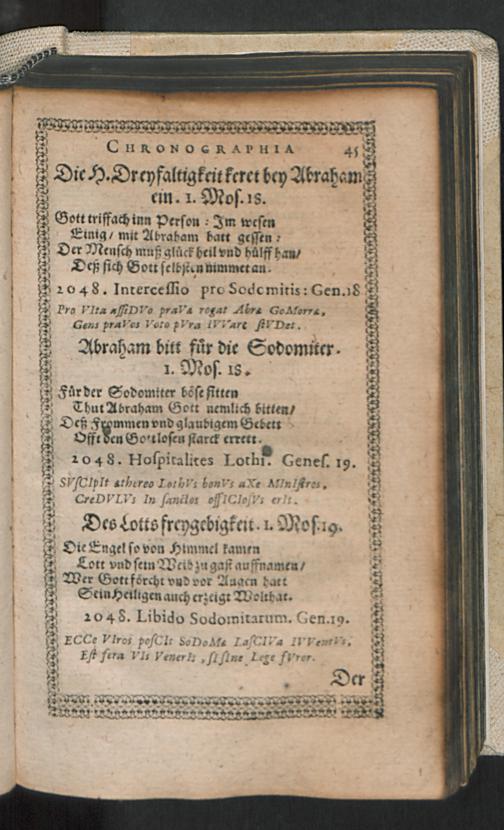 CHRONOGRAPHIA 45
Die H. Dreyfaltigkeit keret bey Abraham
ein. 1. Mos. 18.
Gott triffach inn Person: Im wesen
Einig/ mit Abraham hatt gessen:
Der Mensch muß glück heil vnd hülff han/
Deß sich Gott selbsten nimmet an.
2048. Intercessio pro Sodomitis: Gen. 18
Pro VIta assiDVo praVa rogat Abra GoMorra,
Gens praVos Voto pVra iVVare stVDet.
Abraham bitt für die Sodomiter.
1. Mos. 18.
Für der Sodomiter böse sitten
Thut Abraham Gott nemlich bitten/
Deß Frommen vnd glaubigem Gebett
Offt den Gottlosen starck errett.
2048. Hospitalites Lothi. Genes. 19.
SVsCIpIt æthereo LothVs bonVs aXe MInIstros,
CreDVLVs In sanctos offICIosVs erIt.
Des Lotts freygebigkeit. 1. Mos. 19.
Die Engel so von Himmel kamen
Lott vnd sein Weib zu gast auffnamen/
Wer Gott förcht vnd vor Augen hatt
Sein Heiligen auch erzeigt Wolthat.
2048. Libido Sodomitarum. Gen. 19.
ECCe VIros posCIt SoDoMa LasCIVa IVVentVs,
Est fera VIs VenerIs, sI sIne Lege fVror.
Der